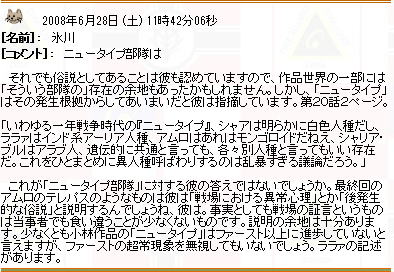 2008年6月28日（土）11時42分06秒
[名前]： 氷川
[コメント]： ニュータイプ部隊は
それでも俗説としてあることは彼も認めていますので、作品世界の一部には
「そういう部隊の」存在の余地もあったかもしれません。しかし、「ニュータイプ」
はその発生根拠からしてあいまいだと彼は指摘しています。第20話2ページ。
「いわゆる一年戦争時代の『ニュータイプ』、シャアは明らかに白色人種だし、
ララァはインド系アーリア人種、アムロはあれはモンゴロイドだねえ、シャリア・
ブルはアラブ人、遺伝的に共通と言っても、各々別人種と言ってもいい存在
だ。これをひとまとめに異人種呼ばわりするのは乱暴すぎる議論だろう。」
これが「ニュータイプ部隊」に対する彼の答えではないでしょうか。最終回の
アムロのテレパスのようなものは彼は「戦場における異常心理」とか「後発生
的な俗説」と説明するんでしょうね、彼は。事実としても戦場の証言というもの
は当事者でも食い違うことが少なくないものです。説明の余地は十分ありま
す。少なくとも小林作品の「ニュータイプ」はファースト以上に進歩していないと
言えますが、ファーストの超常現象を無視してもいないでしょう。ララァの記述
があります。